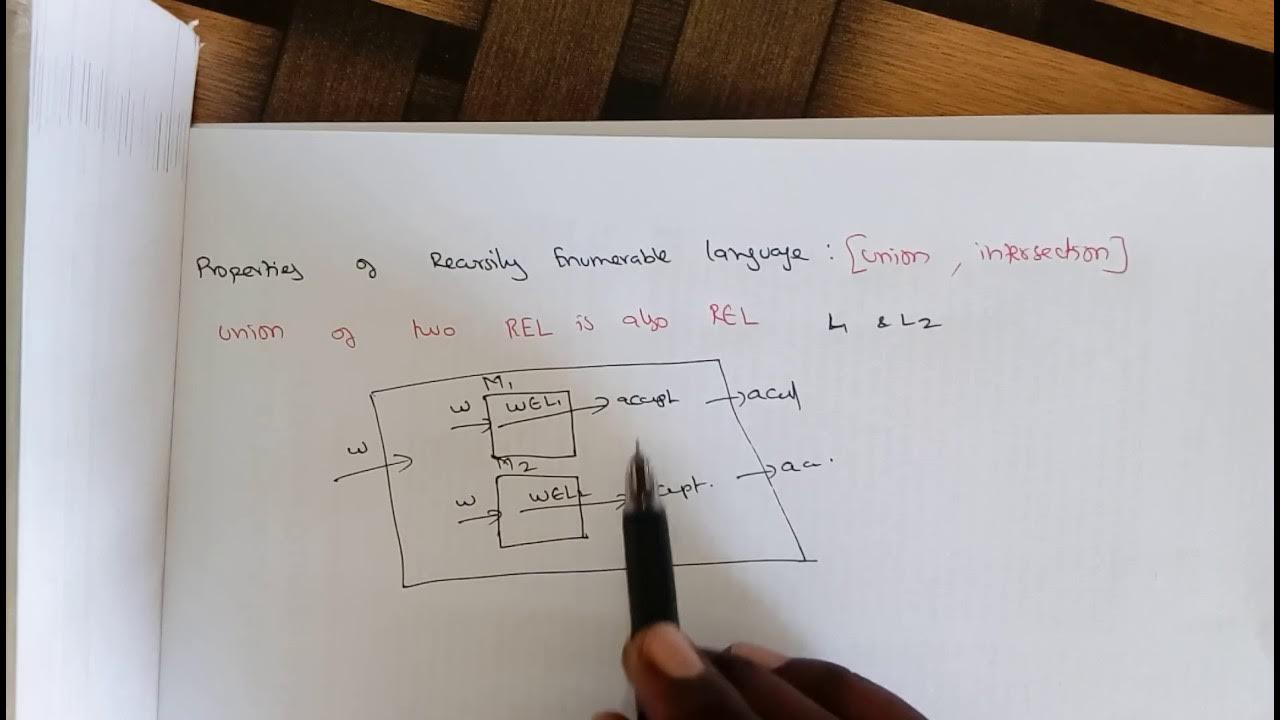 Properties of Recursily Enumerable language : [union , intersection]
union of two REL is also REL L1 & L2
M1
w WEL1 accept
w
M2
w WEL2